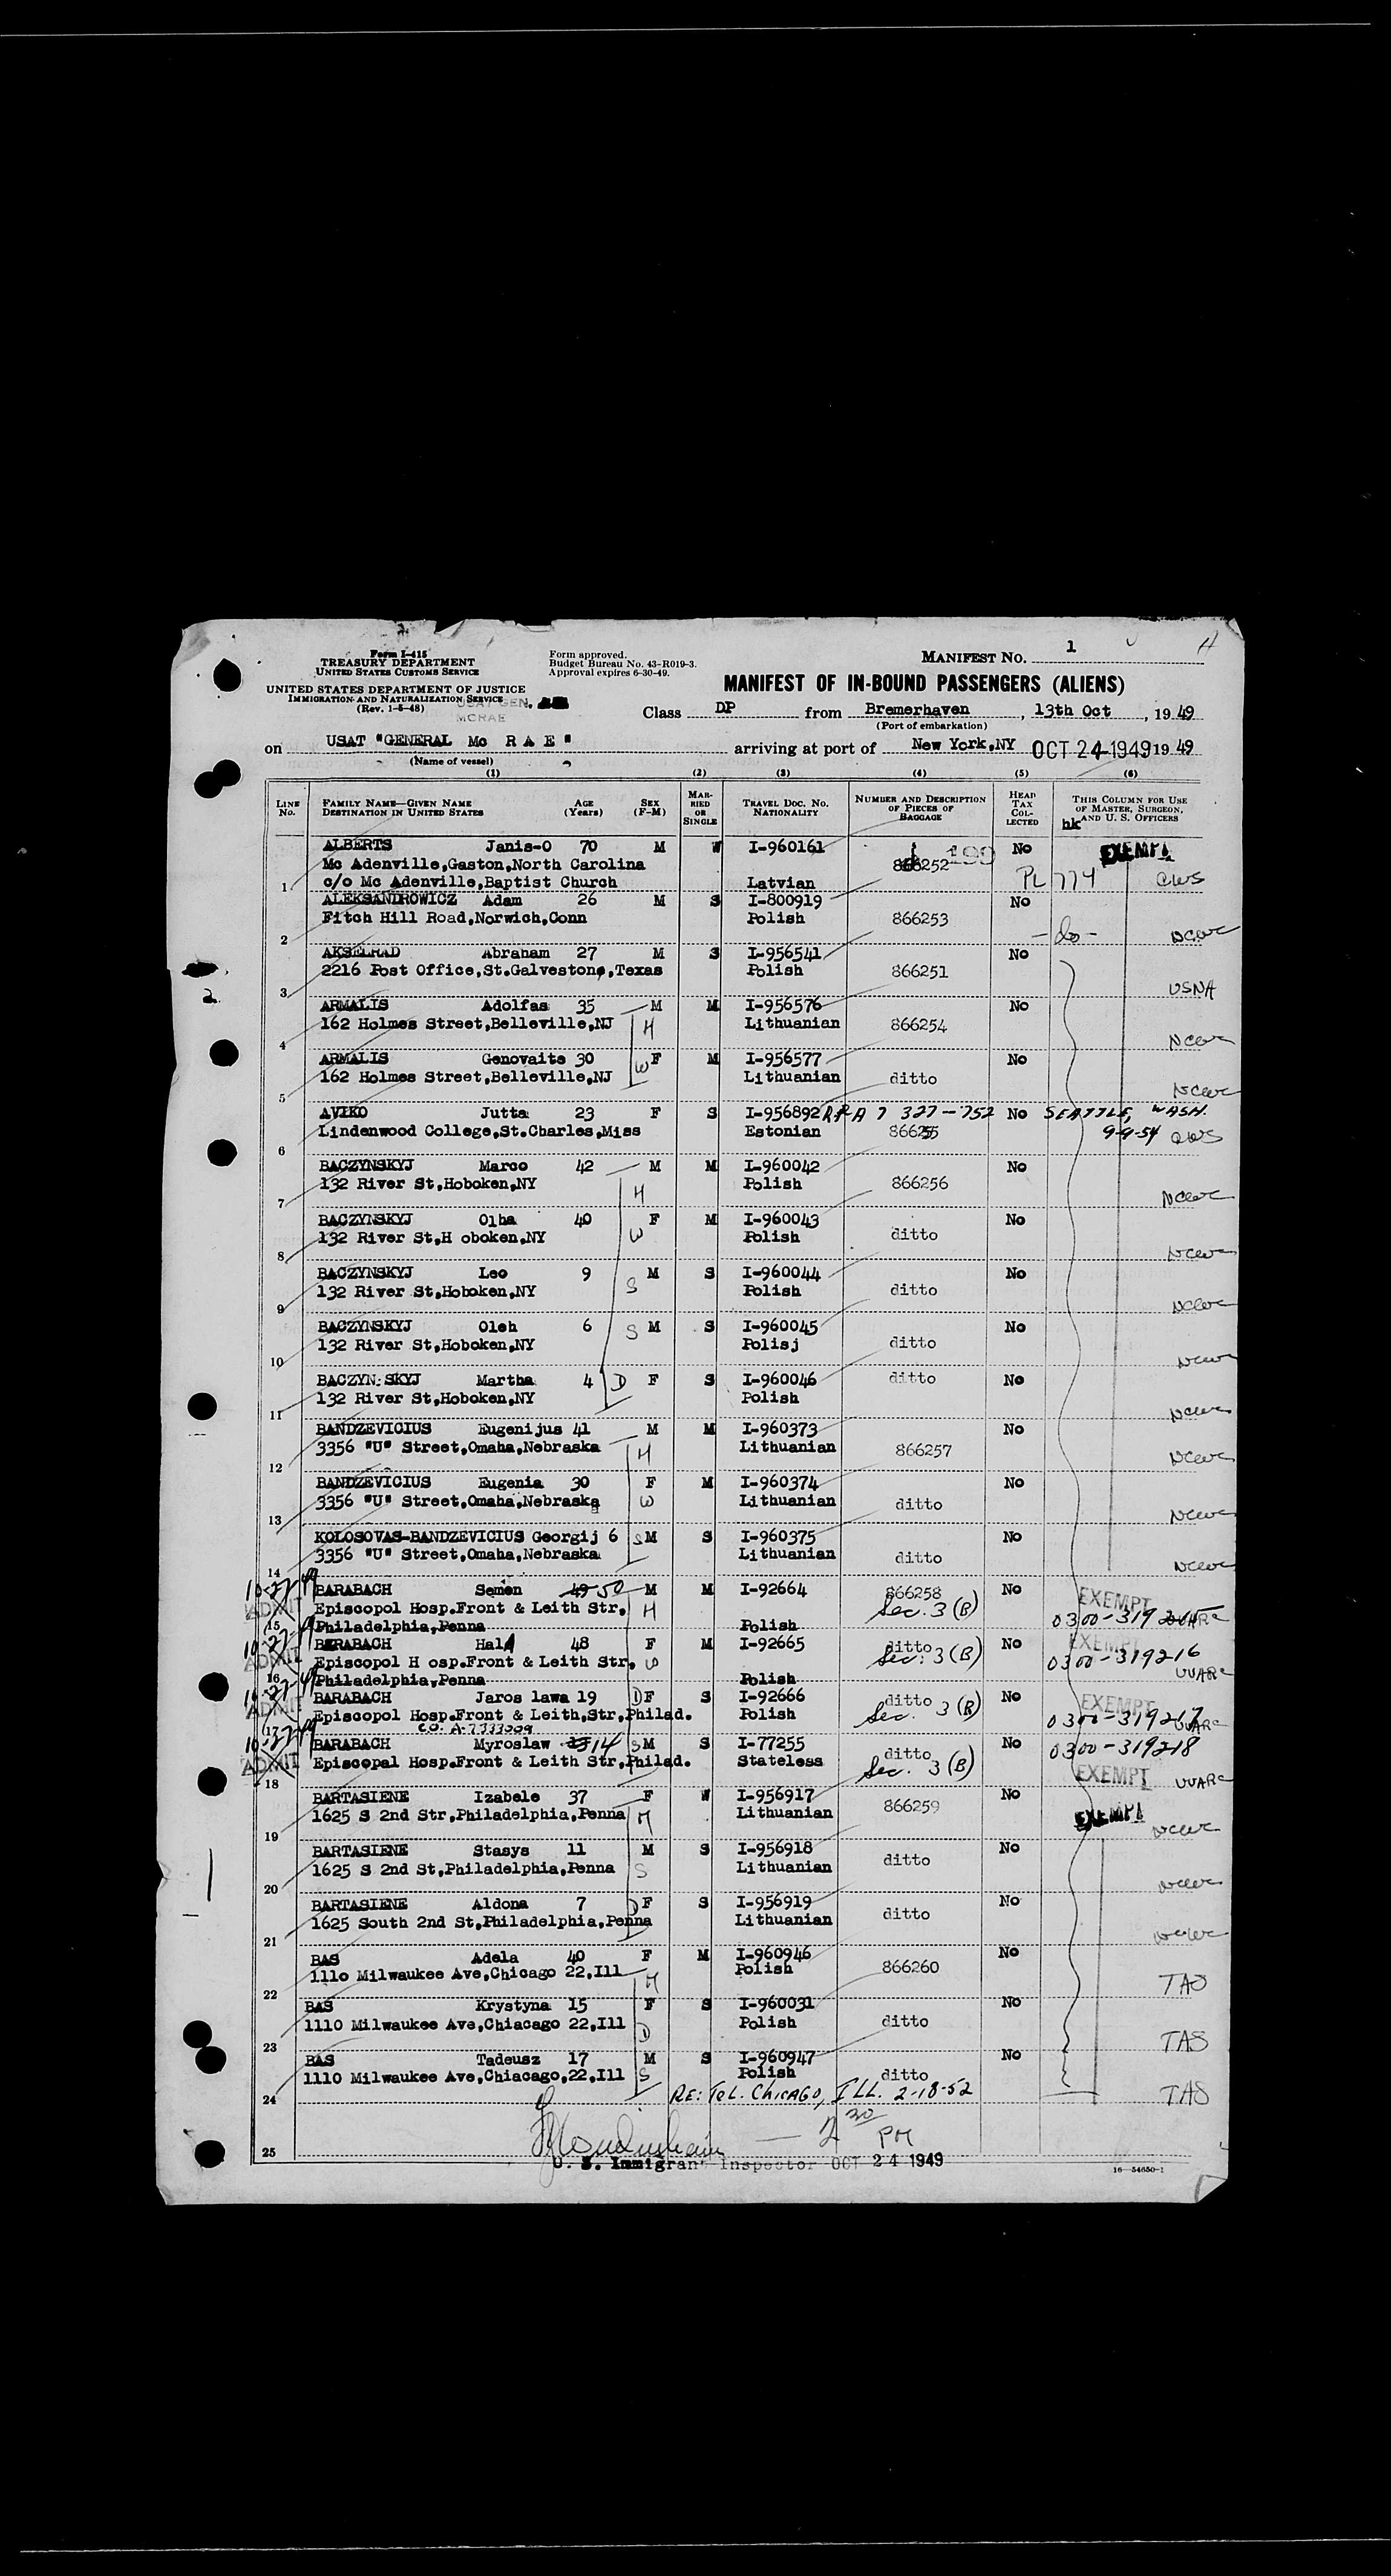 Form I-415
TREASURY DEPARTMENT
UNITED STATES CUSTOMS SERVICE
UNITED STATES DEPARTMENT OF JUSTICE
IMMIGRATION AND NATURALIZATION SERVICE
(Rev. 1-5-48)
Form approved.
Budget Bureau No. 43-R019-3.
Approval expires 6-30-49.
MANIFEST NO. 1
MANIFEST OF IN-BOUND PASSENGERS (ALIENS)
MCRAE
Class DP from Bremerhaven, 13th Oct, 1949
(Port of embarkation)
on USAT "GENERAL Mc R A E" arriving at port of New York,NY OCT 24 1949 1949
(Name of vessel)
(1) (2) (3) (4) (5) (6)
LINE NO. FAMILY NAME—GIVEN NAME DESTINATION IN UNITED STATES AGE (Years) SEX (F-M) MARRIED OR SINGLE TRAVEL DOC. NO. NATIONALITY NUMBER AND DESCRIPTION OF PIECES OF BAGGAGE HEAD TAX COLLECTED THIS COLUMN FOR USE OF MASTER, SURGEON, AND U. S. OFFICERS
hk
ALBERTS Janis-O 70 M W I-960161 190 No EXEMPT
Mc Adenville,Gaston,North Carolina 866252 PL 774 CWS
1 c/o Mc Adenville,Baptist Church Latvian
ALEKSANDROWICZ Adam 26 M S I-800919 No
Fitch Hill Road,Norwich,Conn Polish 866253 -do- NCWC
2
AKSELRAD Abraham 27 M S I-956541 No
2216 Post Office,St.Galveston,,Texas Polish 866251 USNA
3
ARMALIS Adolfas 35 M M I-956576 No
162 Holmes Street,Belleville,NJ H Lithuanian 866254 NCWC
4
ARMALIS Genovaite 30 F M I-956577 No
162 Holmes Street,Belleville,NJ W Lithuanian ditto NCWC
5
AVIKO Jutta 23 F S I-956892 RPA 7 327-752 No SEATTLE, WASH.
Lindenwood College,St.Charles,Miss Estonian 866255 9-9-54 CWS
6
BACZYNSKYJ Marco 42 M M I-960042 No
132 River St,Hoboken,NY H Polish 866256 NCWC
7
BACZYNSKYJ Olha 40 F M I-960043 No
132 River St,H oboken,NY W Polish ditto NCWC
8
BACZYNSKYJ Leo 9 M S I-960044 No
132 River St,Hoboken,NY S Polish ditto NCWC
9
BACZYNSKYJ Oleh 6 S M S I-960045 No
132 River St,Hoboken,NY Polisj ditto NCWC
10
BACZYN:SKYJ Martha 4 D F S I-960046 ditto No
132 River St,Hoboken,NY Polish NCWC
11
BANDZEVICIUS Eugenijus 41 M M I-960373 No
3356 "U" Street,Omaha,Nebraska H Lithuanian 866257 NCWC
12
BANDZEVICIUS Eugenia 30 F M I-960374 No
3356 "U" Street,Omaha,Nebraska W Lithuanian ditto NCWC
13
KOLOSOVAS-BANDZEVICIUS Georgij 6 S M S I-960375 No
3356 "U" Street,Omaha,Nebraska Lithuanian ditto NCWC
14
10-27-49 BARABACH Semen 49 50 M M I-92664 866258 No EXEMPT
ADMIT Episcopol Hosp.Front & Leith Str, H Sec. 3(B) 0300-319215 UUARC
15 Philadelphia,Penna Polish
10-27-49 BERABACH Hal 48 F M I-92665 ditto No EXEMPT
ADMIT Episcopol H osp.Front & Leith Str, W Sec. 3(B) 0300-319216 UUARC
16 Philadelphia,Penna Polish
10-27-49 BARABACH Jaros lawa 19 D F S I-92666 ditto No EXEMPT
ADMIT Episcopol Hosp.Front & Leith,Str,Philad. Polish Sec. 3(B) 0300-319217 UUARC
17 CO. A-7333009
10-27-49 BARABACH Myroslaw 14 S M S I-77255 ditto No 0300-319218
ADMIT Episcopal Hosp.Front & Leith Str,Philad. Stateless Sec. 3(B) EXEMPT UUARC
18
BARTASIENE Izabele 37 F W I-956917 No
1625 S 2nd Str,Philadelphia,Penna M Lithuanian 866259 EXEMPT NCWC
19
BARTASIENE Stasys 11 M S I-956918 No
1625 S 2nd St,Philadelphia,Penna S Lithuanian ditto NCWC
20
BARTASIENE Aldona 7 D F S I-956919 No
1625 South 2nd St,Philadelphia,Penna Lithuanian ditto NCWC
21
BAS Adela 40 F M I-960946 No
1110 Milwaukee Ave,Chicago 22,Ill M Polish 866260 TAS
22
BAS Krystyna 15 F S I-960031 No
1110 Milwaukee Ave,Chiacago 22,Ill D Polish ditto TAS
23
BAS Tadeusz 17 M S I-960947 No
1110 Milwaukee Ave,Chiacago,22,Ill S Polish ditto TAS
24 RE: TEL. CHICAGO, ILL. 2-18-52
2 30 PM
25
U. S. Immigrant Inspector OCT 24 1949
16—54650-1